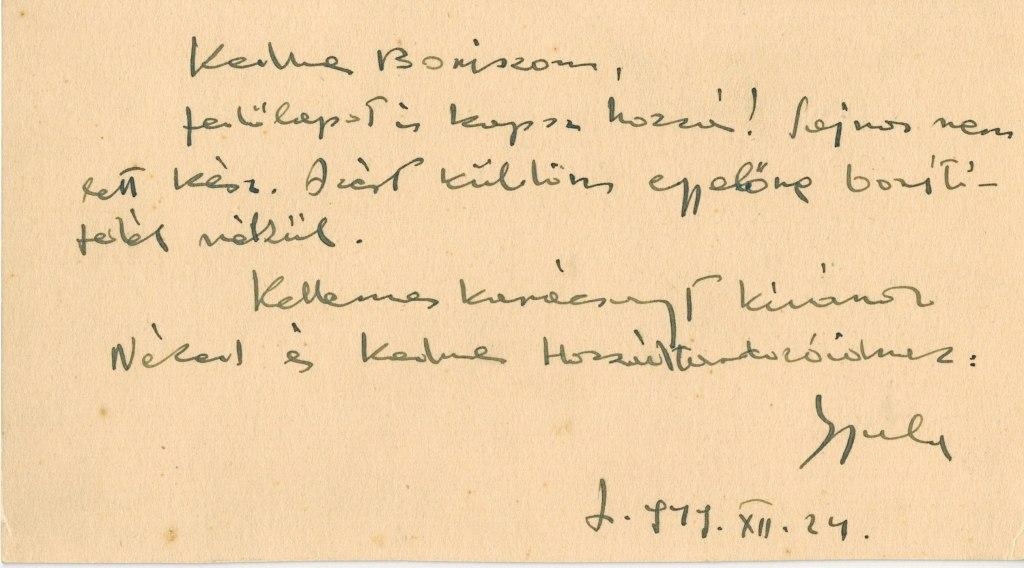 Kedves Boriszom,
fedőlapot is kapsz hozzá! Sajnos nem
lett kész. Azért küldöm egyelőre borító-
fedél nélkül.
Kellemes karácsonyt kívánok
Néked és kedves Hozzádtartozóidnak:
Gyula
XII. 24.